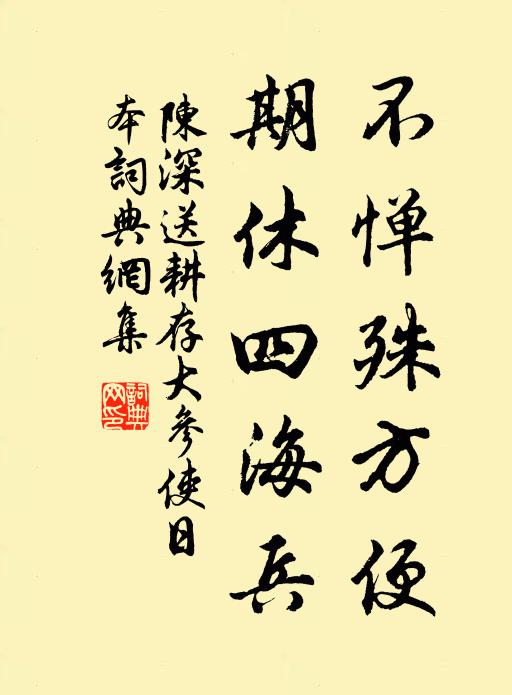 不惮殊方使
期休四海兵
陳深送耕存大參使日
本詞典網集
詞典
网印